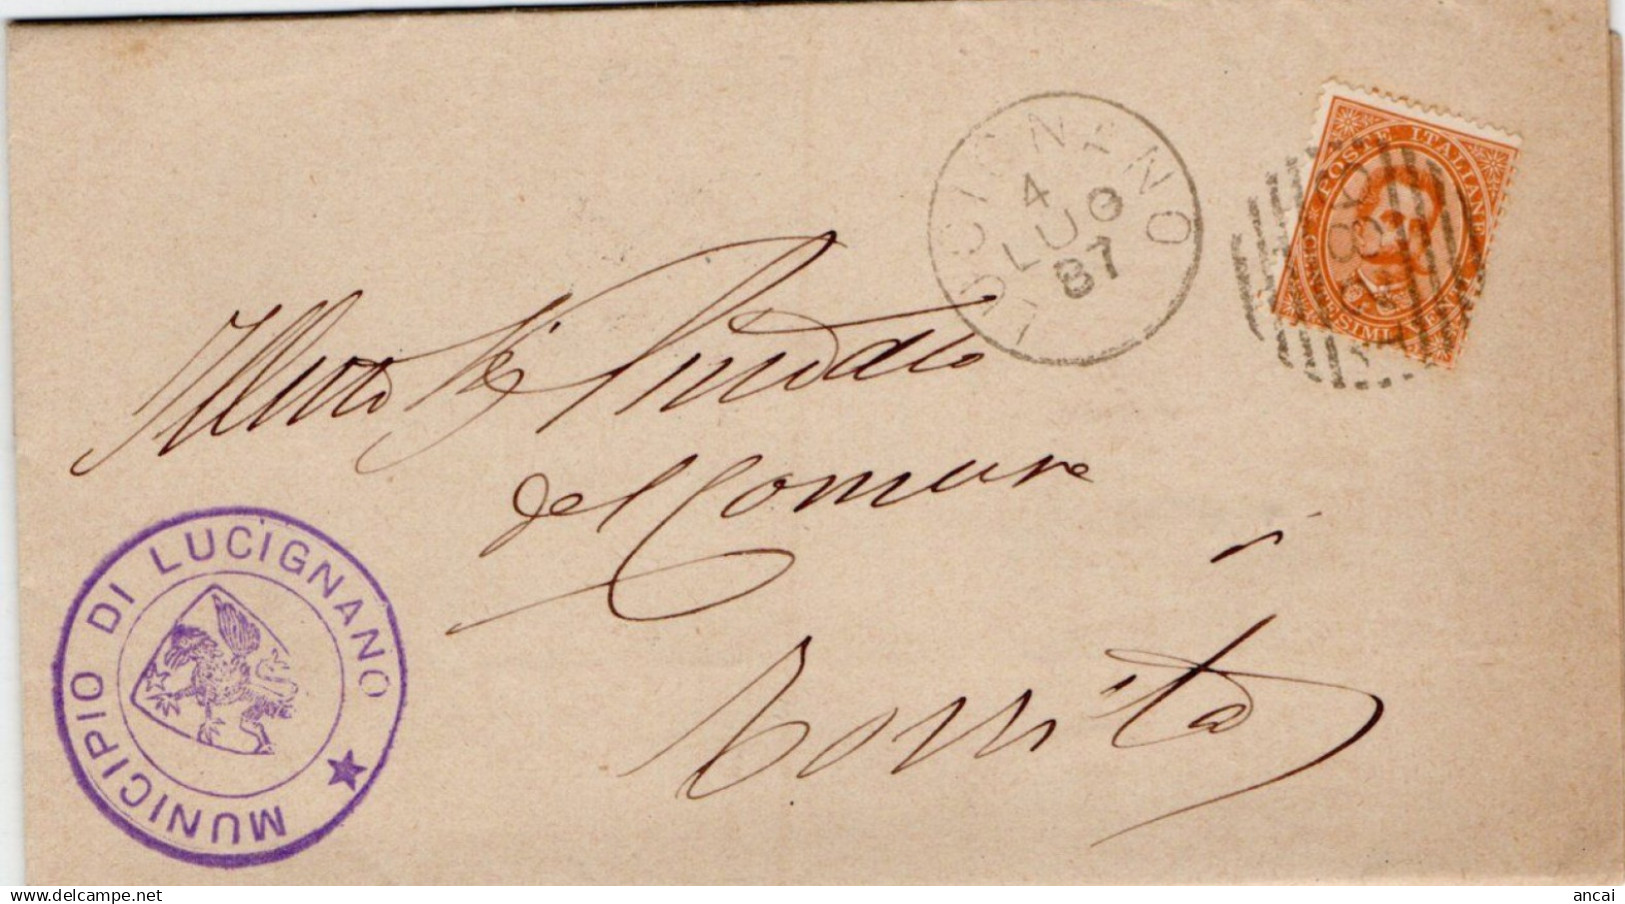 LUCIGNANO
4
LUG
87
POSTE ITALIANE
CENTESIMI VENTI
Illmo Sig Sindaco
del Comune
di
Torrita
MUNICIPIO DI LUCIGNANO
www.delcampe.net
ancai